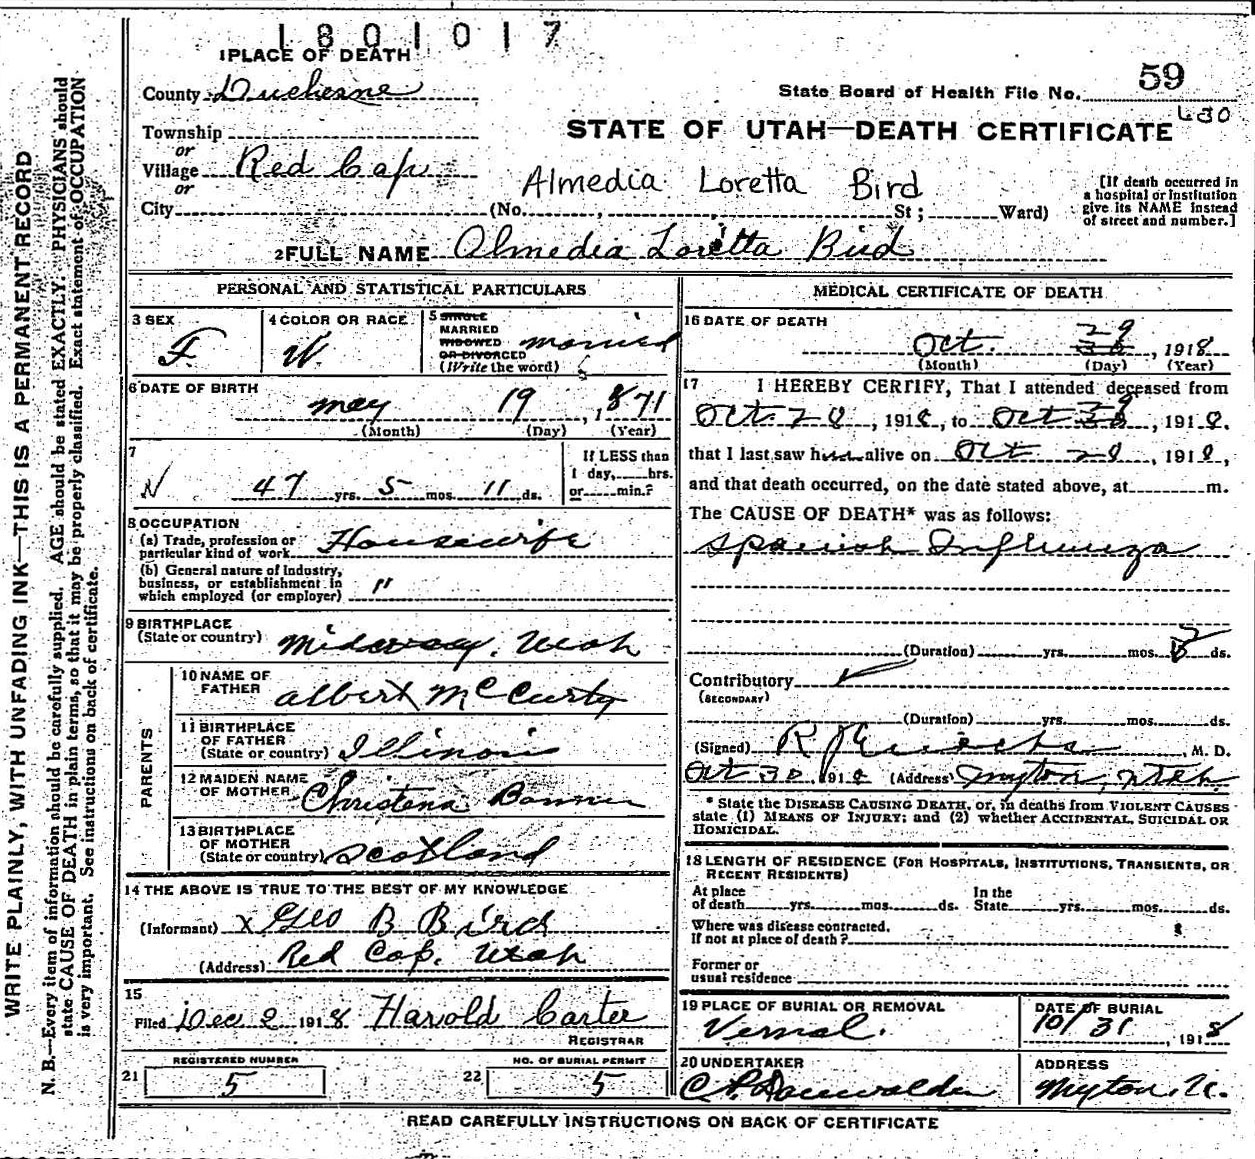 1801017
1 PLACE OF DEATH
County Duchesne
State Board of Health File No. 59
630
STATE OF UTAH—DEATH CERTIFICATE
Township
or
Village Red Cap
or
Almedia Loretta Bird
City (No. , , St ; Ward)
[If death occurred in
a hospital or institution
give its NAME instead
of street and number.]
2 FULL NAME Almedia Loretta Bird
PERSONAL AND STATISTICAL PARTICULARS
3 SEX
F.
4 COLOR OR RACE
W.
5 SINGLE
MARRIED
WIDOWED
OR DIVORCED
(Write the word)
married
6 DATE OF BIRTH
may 19, 1871
(Month) (Day) (Year)
7
47 yrs. 5 mos. 11 ds.
If LESS than
1 day, hrs.
or min.?
8 OCCUPATION
(a) Trade, profession or
particular kind of work Housewife
(b) General nature of industry,
business, or establishment in
which employed (or employer) "
9 BIRTHPLACE
(State or country) Midway, Utah
PARENTS
10 NAME OF
FATHER Albert McCurty
11 BIRTHPLACE
OF FATHER
(State or country) Illinois
12 MAIDEN NAME
OF MOTHER Christena
13 BIRTHPLACE
OF MOTHER
(State or country) Scotland
14 THE ABOVE IS TRUE TO THE BEST OF MY KNOWLEDGE
(Informant) x Geo B Bird
(Address) Red Cap. Utah
15
Filed Dec 2 1918 Harold Carter
REGISTRAR
REGISTERED NUMBER
21 5
NO. OF BURIAL PERMIT
22 5
MEDICAL CERTIFICATE OF DEATH
16 DATE OF DEATH
Oct. 29, 1918
(Month) (Day) (Year)
17 I HEREBY CERTIFY, That I attended deceased from
Oct. 28, 1918, to Oct 29, 1918.
that I last saw h alive on Oct 28, 1918,
and that death occurred, on the date stated above, at m.
The CAUSE OF DEATH* was as follows:
Spanish Influenza
(Duration) yrs. mos. ds.
Contributory
(SECONDARY)
(Duration) yrs. mos. ds.
(Signed) R , M. D.
Oct 30 1918 (Address) Myton, Utah
* State the DISEASE CAUSING DEATH, or, in deaths from VIOLENT CAUSES
state (1) MEANS OF INJURY; and (2) whether ACCIDENTAL, SUICIDAL OR
HOMICIDAL.
18 LENGTH OF RESIDENCE (FOR HOSPITALS, INSTITUTIONS, TRANSIENTS, OR
RECENT RESIDENTS)
At place
of death yrs. mos. ds.
In the
State yrs. mos. ds.
Where was disease contracted,
If not at place of death?
Former or
usual residence
19 PLACE OF BURIAL OR REMOVAL
Vernal.
DATE OF BURIAL
10/31, 1918
20 UNDERTAKER
ADDRESS
Myton, U.
READ CAREFULLY INSTRUCTIONS ON BACK OF CERTIFICATE
WRITE PLAINLY, WITH UNFADING INK—THIS IS A PERMANENT RECORD
N. B.—Every item of information should be carefully supplied. AGE should be stated EXACTLY. PHYSICIANS should
state CAUSE OF DEATH in plain terms, so that it may be properly classified. Exact statement of OCCUPATION
is very important. See instructions on back of certificate.